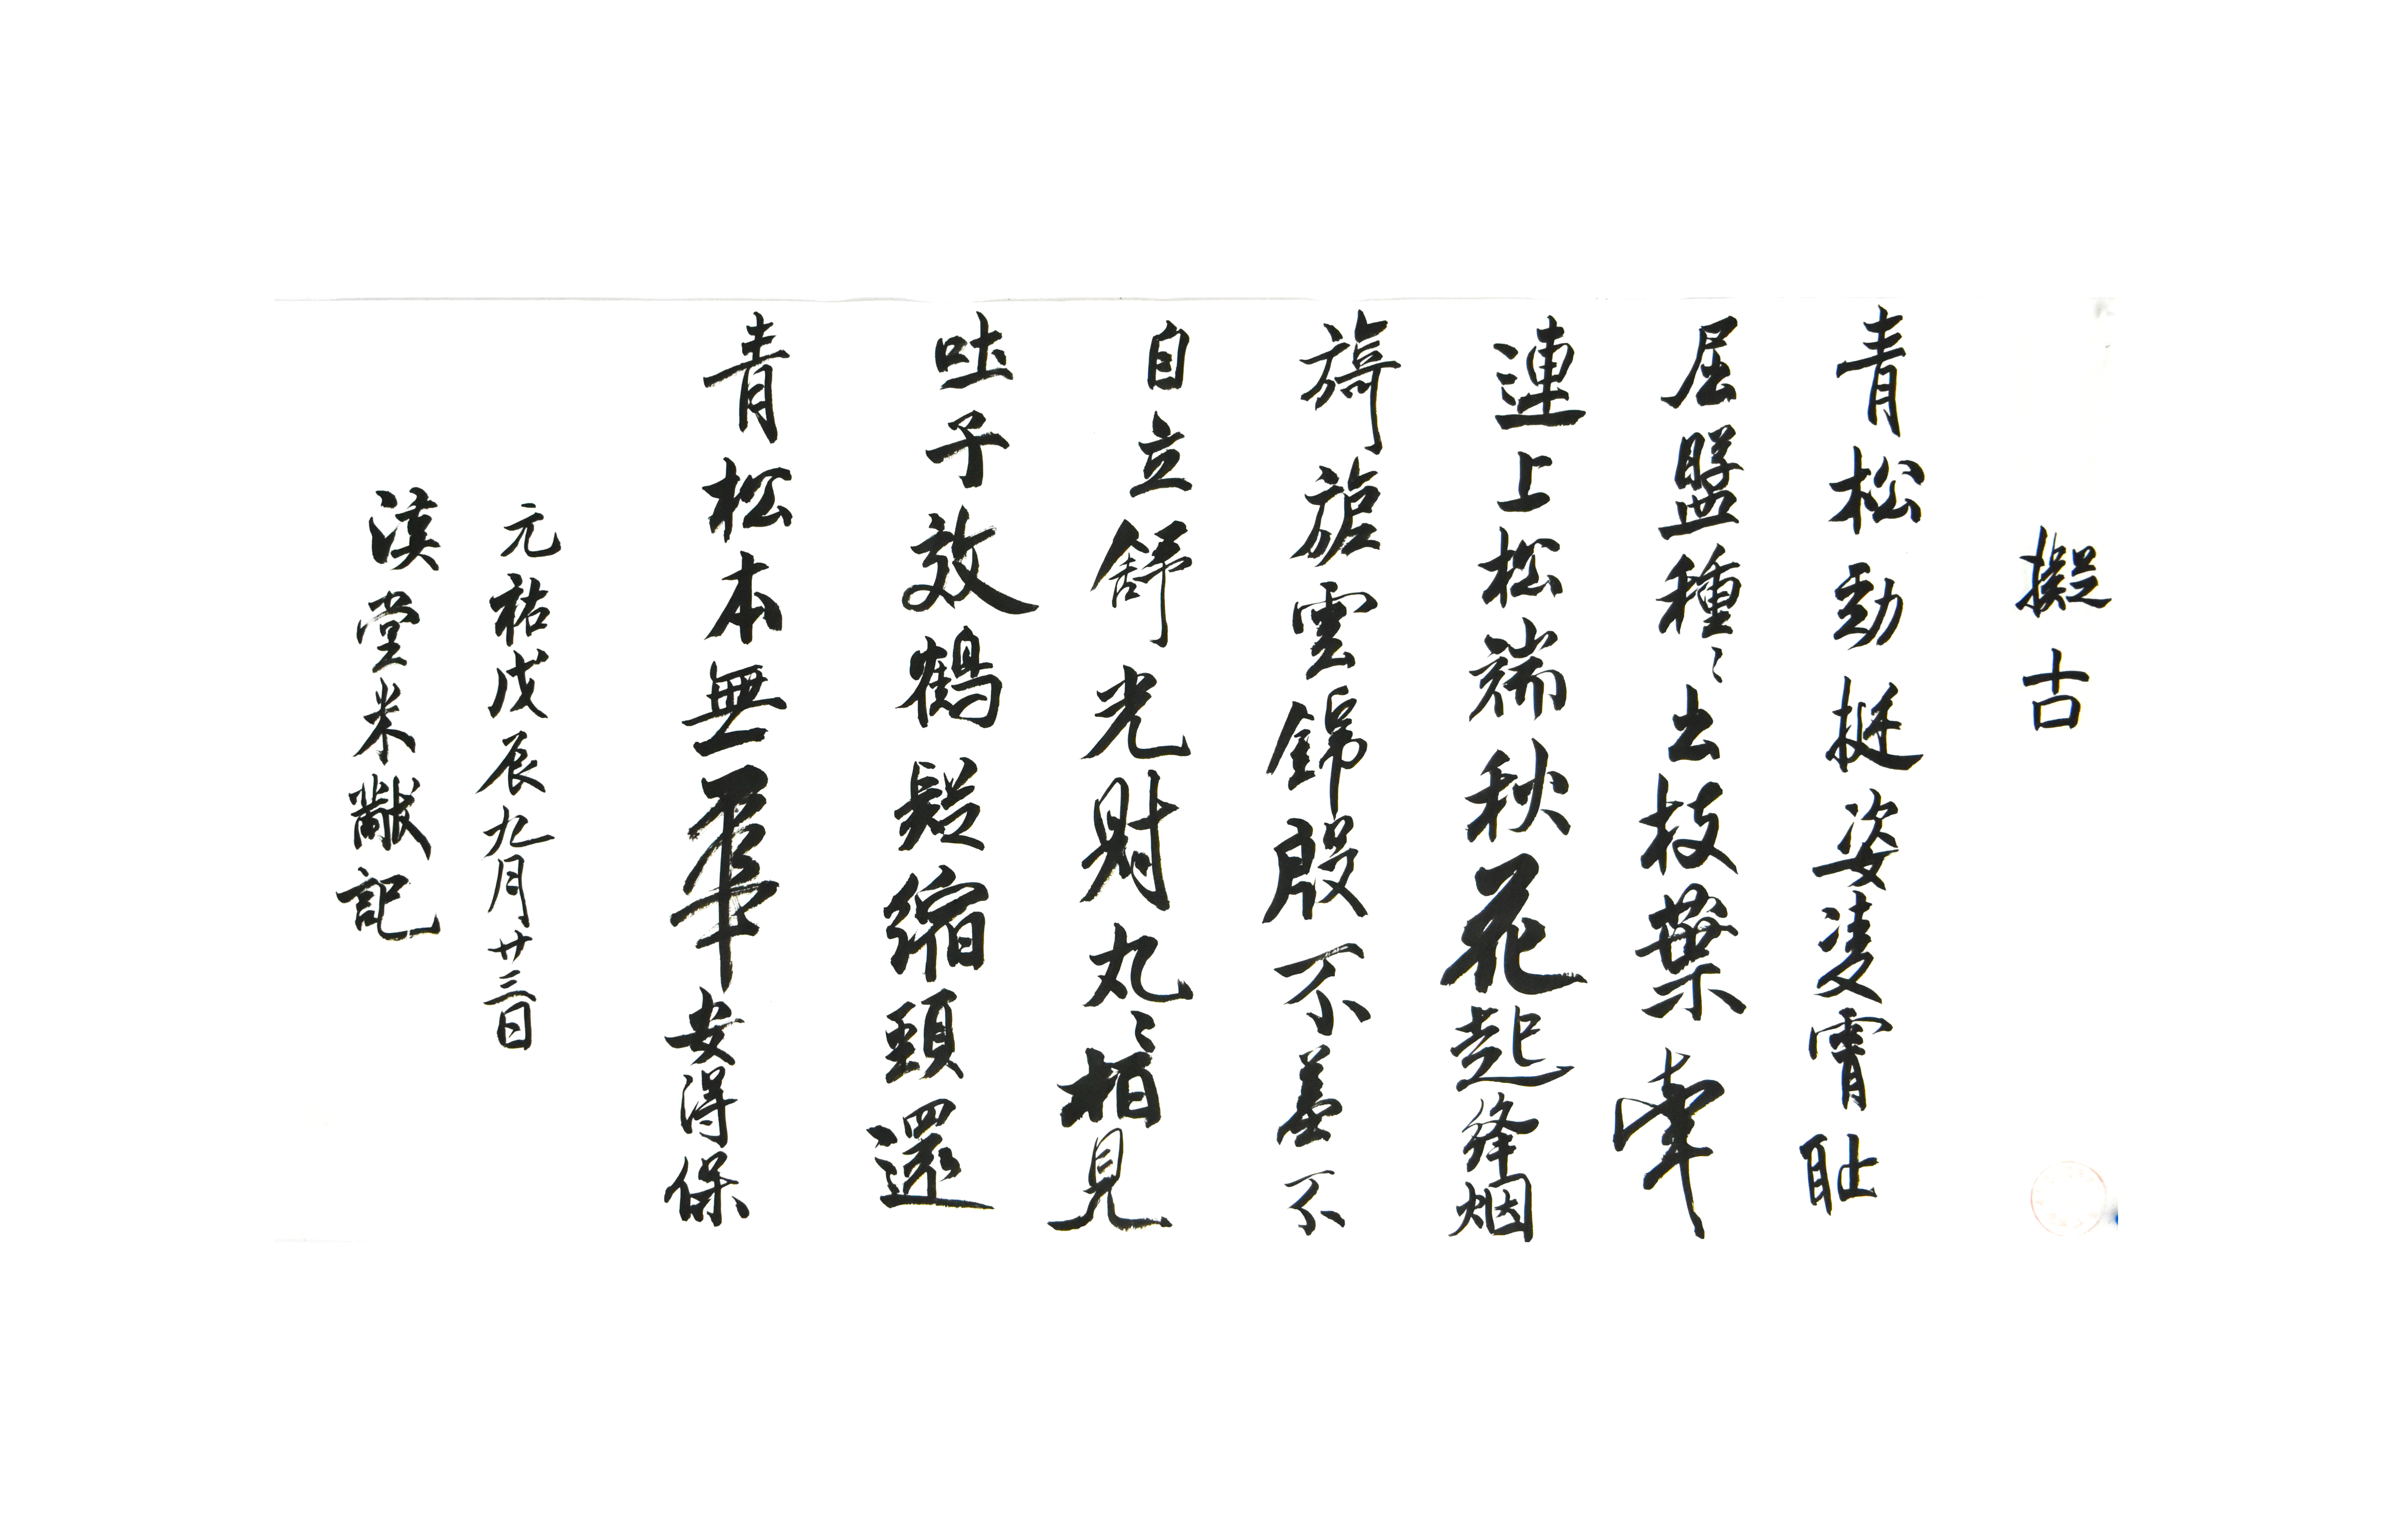 擬古
青松勁挺姿凌霄耻
屈盤種〻出枝葉牽
連上松端秋花起絳烟
旖旎雲錦殷不羞不
自立舒光射丸〻柏見
吐子效鶴疑縮頸還
青松本無華安得保
元祐戊辰九月廿三日
溪堂米黻記